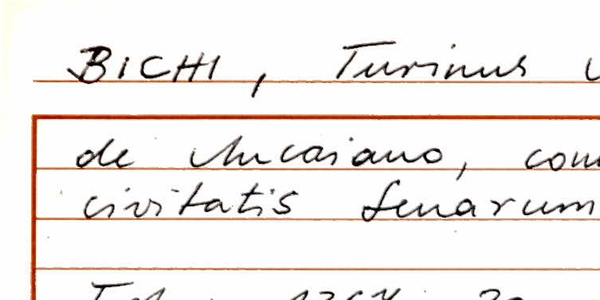 BICHI, Turinus
de com
civitatis Senarum